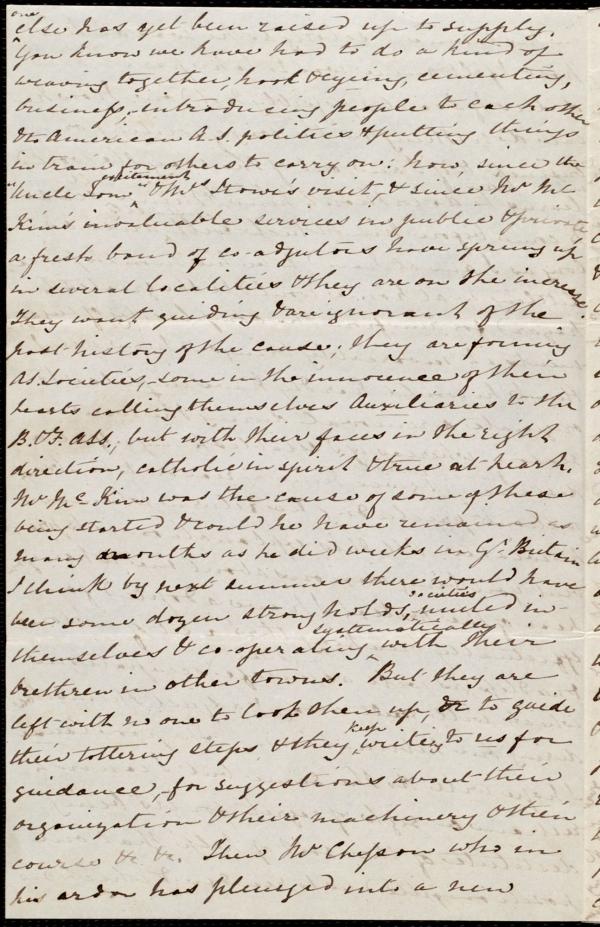 one
else has yet been raised up to supply.
You know we have had to do a kind of
weaving together, hook & eyeing, cementing,
business, introducing people to each other
& to American A.S. politics & putting things
in train for others to carry on: Now, since the
excitement
"Uncle Tom" & Mrs Stowe's visit, & since Mr Mc
Kim's invaluable services in public & private
a fresh band of co-adjutors have sprung up
in several localities & they are on the increase.
They want guiding & are ignorant of the
past history of the cause; they are forming
AS. Societies, some in the innocence of their
hearts calling themselves Auxiliaries to the
B. & F. Ass., but with their faces in the right
direction, catholic in spirit & true at heart.
Mr Mc Kim was the cause of some of these
being started & could he have remained as
many months as he did weeks in Gt Britain
I think by next summer there would have
societies
been some dozen strong holds, united in
systematically
themselves & co-operating with their
brethren in other towns. But they are
left with no one to look them up, or to guide
keep
their tottering steps & they writing to us for
guidance, for suggestions about their
organization & their machinery & their
course &c &c. Then Mr Chesson who in
his ardor has plunged into a new